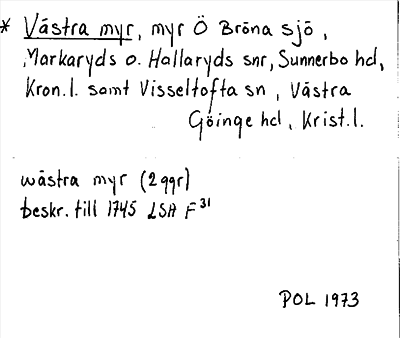 * Västra myr, myr Ö Bröna sjö,
Markaryds o. Hallaryds snr, Sunnerbo hd,
Kron.l. samt Visseltofta sn, Västra
Göinge hd, Krist.l.
wästra myr (2 ggr)
beskr. till 1745 LSA F³¹
POL 1973